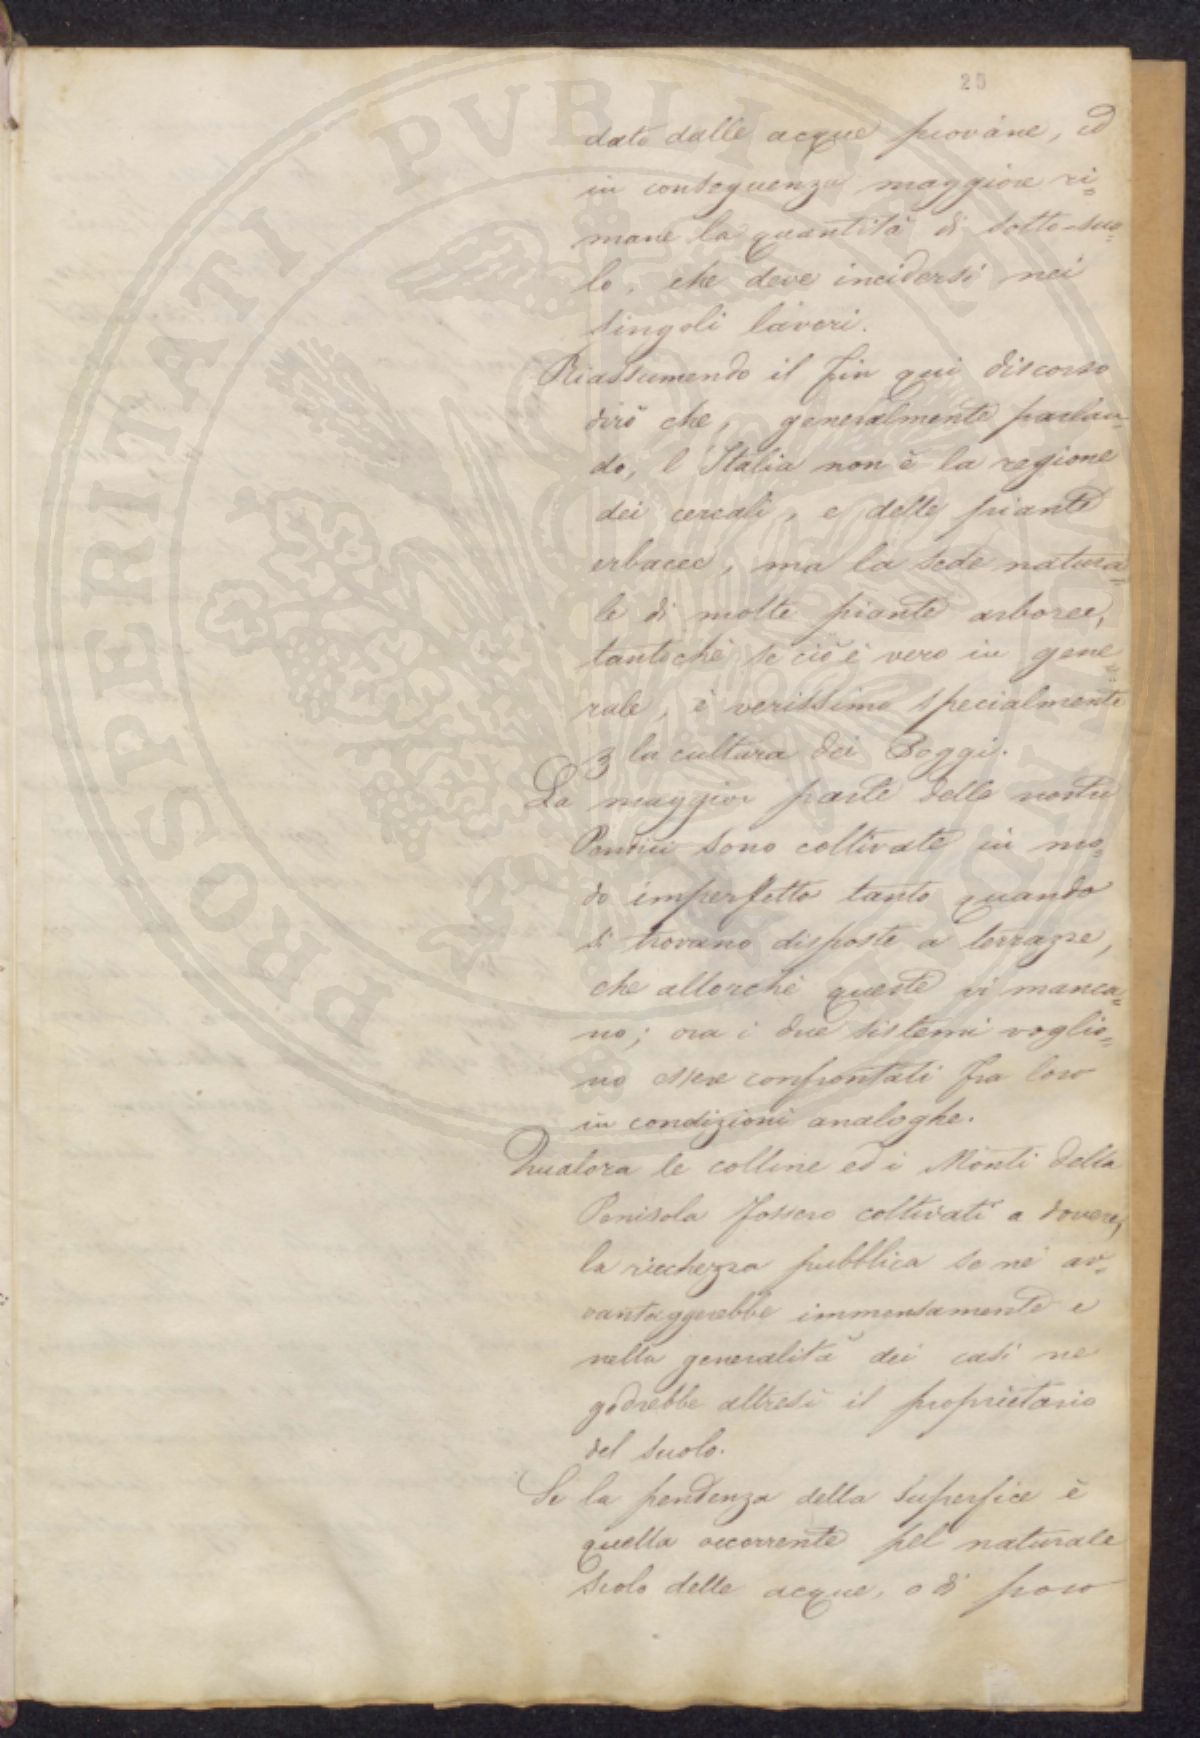 25
dato dalle acque piovane, ed
in conseguenza maggiore ri=
mane la quantità di sotto-suo=
lo, che deve incidersi nei
singoli lavori.
Riassumendo il fin qui discorso
dirò che, generalmente parlan=
do, l'Italia non è la regione
dei cereali, e delle piante
erbacee, ma la sede natura=
le di molte piante arboree,
tantochè se ciò è vero in gene=
rale, è verissimo specialmente
3 la cultura dei Poggi.
La maggior parte delle nostre
Pendici sono coltivate in mo=
do imperfetto tanto quando
si trovano disposte a terrazze,
che allorchè queste vi manca=
no; ora i due sistemi voglio=
no essere confrontati fra loro
in condizioni analoghe.
Qualora le colline ed i Monti della
Penisola fossero coltivati a dovere,
la ricchezza pubblica se ne av=
vantaggerebbe immensamente e
nella generalità dei casi ne
godrebbe altresì il proprietario
del suolo.
Se la pendenza della superfice è
quella occorrente pel naturale
scolo delle acque, o di poco
PUBLICAE PROSPERITATI